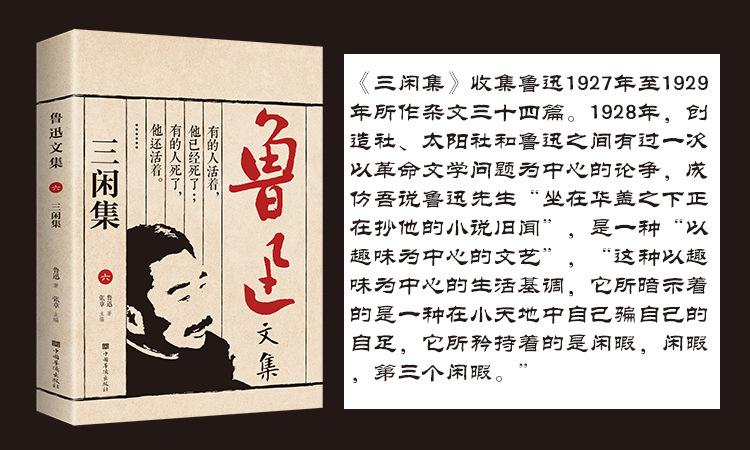 鲁迅文集
六
三闲集
鲁迅 著
张章 主编
中国华侨出版社
鲁迅
文集
有的人活着，
他已经死了；
有的人死了，
他还活着。
……
三闲集
六
鲁迅 著
张章 主编
中国华侨出版社
《三闲集》收集鲁迅1927年至1929
年所作杂文三十四篇。1928年，创
造社、太阳社和鲁迅之间有过一次
以革命文学问题为中心的论争，成
仿吾说鲁迅先生“坐在华盖之下正
在抄他的小说旧闻”，是一种“以
趣味为中心的文艺”，“这种以趣
味为中心的生活基调，它所暗示着
的是一种在小天地中自己骗自己的
自足，它所矜持着的是闲暇，闲暇
，第三个闲暇。”